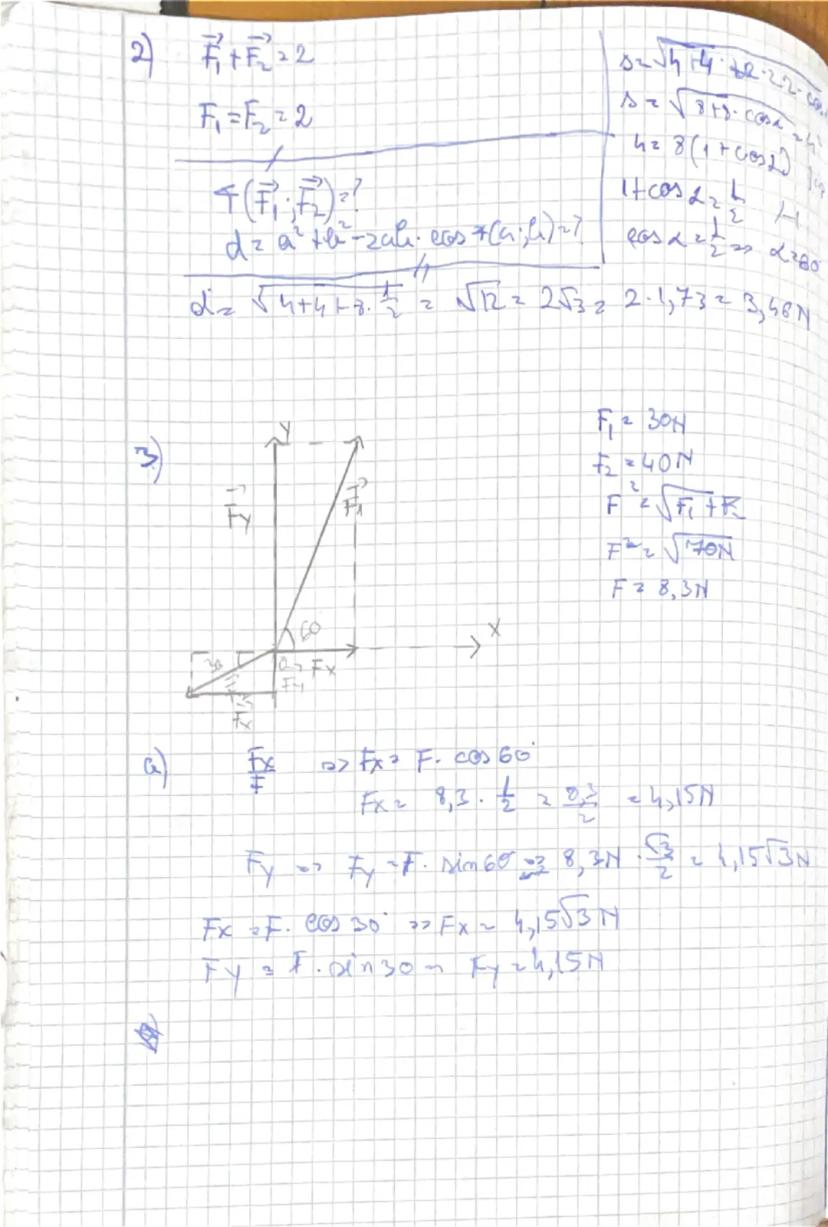 2) F₁ + F₂ = 2
F₁ = F₂ = 2
∢(F₁; F₂) = ?
d = a² + b² - 2ab · cos ∢(a; b) = ?
s = √4+4+2·2·2·cos
s = √8+8·cosα = 4
4 = 8(1+cosα)
1+cosα = 
cosα = 1/2 => α = 60
d = √4+4+8·1/2 = √12 = 2√3 = 2·1,73 = 3,46N
3)
Y
Fy
F₁
60
X
Fx
30
Fx
F₁ = 30N
F₂ = 40N
F² = √F₁+F₂
F² = √70N
F = 8,3N
a) Fx/F => Fx = F · cos60°
Fx = 8,3 · 1/2 = 8,3/2 = 4,15N
Fy => Fy = F · sin60° => 8,3N · √3/2 = 4,15√3N
Fx = F · cos30° => Fx = 4,15√3N
Fy = F · sin30 = Fy = 4,15N